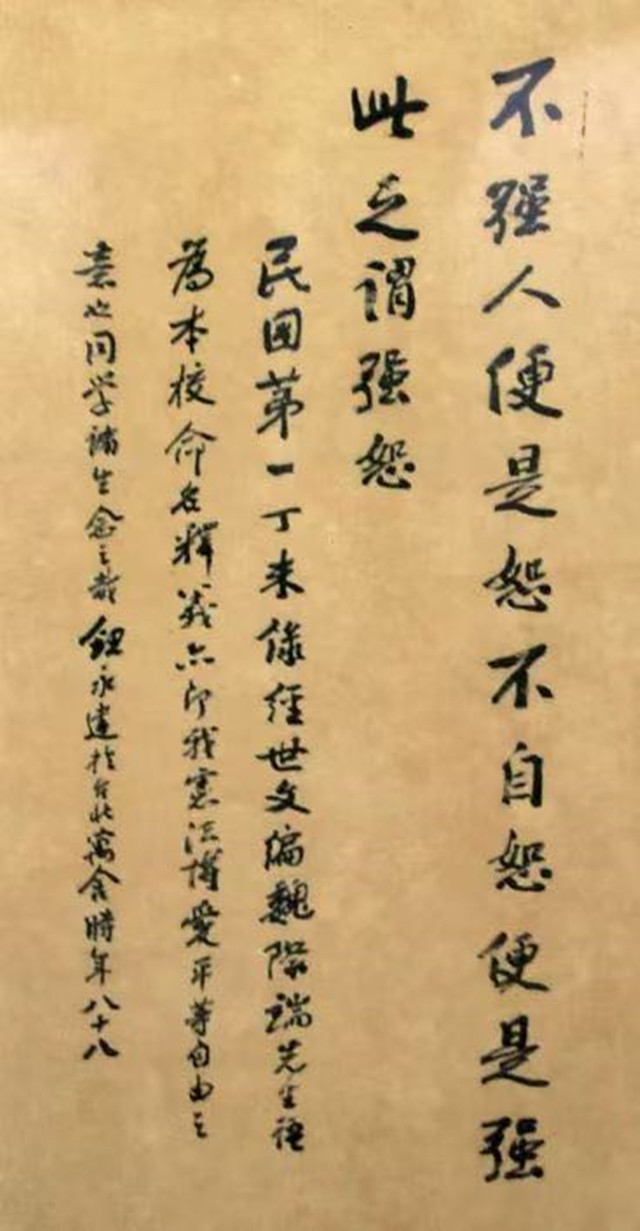 不強人便是恕不自恕便是強
此之謂強恕
民國第一丁未錄經世文編魏際瑞先生語
為本校命名釋義亦即我憲法博愛平等自由之
意也同學諸生念之哉 鈕永建於台北寓舍時年八十八